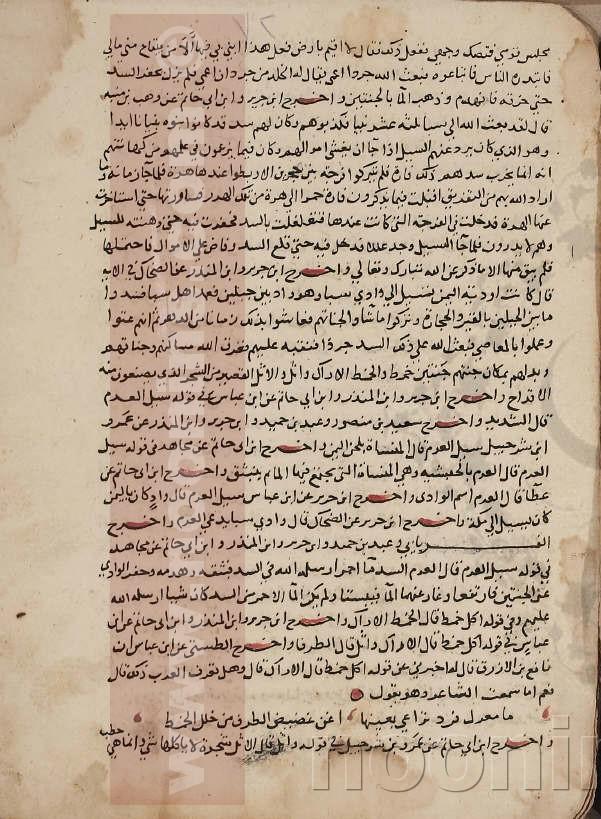 مجلس قومي فتصكّ وجهي ففعل ذلك فقال لا اقيم بارض فعل هذا ابني بي فيها الا من يبتاع مني مالي
فابتدره الناس فابتاعوه فبعث الله جرذا اعمى يقال له الخلد من جرذان اعمى فلم يزل يحفر السد
حتى خرقه فانهدم وذهب الما بالجنتين واخرج ابن جرير وابن ابي حاتم عن وهب بن منبه
قال لقد بعث الله الى سبا ثلثة عشر نبيا فكذبوهم وكان لهم سد قد كانوا بنوه بنيانا ابدا
وهو الذي كان يرد عنهم السيل اذا جا ان يغشى اموالهم وكان فيما يزعون في علمهم من كهانتهم
انه انما يخرب سدهم ذلك فارة فلم يتركوا فرجة بين حجرين الا ربطوا عندها هرة فلما جا زمانه وما
اراد الله بهم من التغريق اقبلت فيما يذكرون فارة حمرا الى هرة من تلك الهرر فساورتها حتى استاخرت
عنها الهرة فدخلت في الفرجة التي كانت عندها فتغلغلت بالسد فحفرت فيه حتى وهنته للسيل
وهم لا يدرون فلما جا السيل وجد خللا فدخل فيه حتى قلع السد وفاض على الاموال فاحتملها
فلم يبق منها الا ما ذكر عن الله تبارك وتعالى واخرج ابن جرير وابن المنذر عن الضحاك في الاية
قال كانت اودية اليمن تسيل الى وادي سبا وهو واد بين جبلين فعمد اهل سبا فسدوا
ما بين الجبلين بالقير والحجارة وتركوا ما شاوا لجناتهم فعاشوا بذلك زمانا من الدهر ثم انهم عتوا
وعملوا بالمعاصي فبعث الله على ذلك السد جرذا فنقبه عليهم فغرق الله مساكنهم وجناتهم
وبدلهم بمكان جنتهم جنتين خمط والخمط الاراك واثل والاثل القصير من الشجر الذي يصنعون منه
الاقداح واخرج ابن جرير وابن المنذر وابن ابي حاتم عن ابن عباس في قوله سيل العرم
قال الشديد واخرج سعيد بن منصور وعبد بن حميد وابن جرير وابن المنذر عن عمرو
ابن شرحبيل سيل العرم قال المسناة بلحن اليمن واخرج ابن ابي حاتم عن مجاهد في قوله سيل
العرم قال العرم بالحبشية وهي المسناة التي يجتمع فيها الما ثم ينبثق واخرج ابن ابي حاتم عن
عطا قال العرم اسم الوادي واخرج ابن جرير عن ابن عباس سيل العرم قال واد كان باليمن
كان يسيل الى مكة واخرج ابن جرير عن الضحاك قال وادي سبا يدعى العرم واخرج
الفريابي وعبد بن حميد وابن جرير وابن المنذر وابن ابي حاتم عن مجاهد
في قوله سيل العرم قال العرم السد ما احمر ارسله الله في السد فشقه وهدمه وحفر الوادي
عن الجنتين فارتفعا وغار عنهما الما فيبستا ولم يكن الما الاحمر من السد كان شيا ارسله الله
عليهم وفي قوله اكل خمط قال الخمط الاراك واخرج ابن جرير وابن المنذر وابن ابي حاتم عن ابن
عباس في قوله اكل خمط قال الاراك واثل قال الطرفا واخرج الطستي عن ابن عباس ان
نافع بن الازرق قال له اخبرني عن قوله اكل خمط قال الاراك قال وهل تعرف العرب ذلك قال
نعم اما سمعت الشاعر وهو يقول
ما مغزل فرد تراعي بعينها اغن غضيض الطرف من خلل الخمط
واخرج ابن ابي حاتم عن عمرو بن شرحبيل في قوله واثل قال الاثل شجرة لا ياكلها شي وانما هي
حطب
noorlib